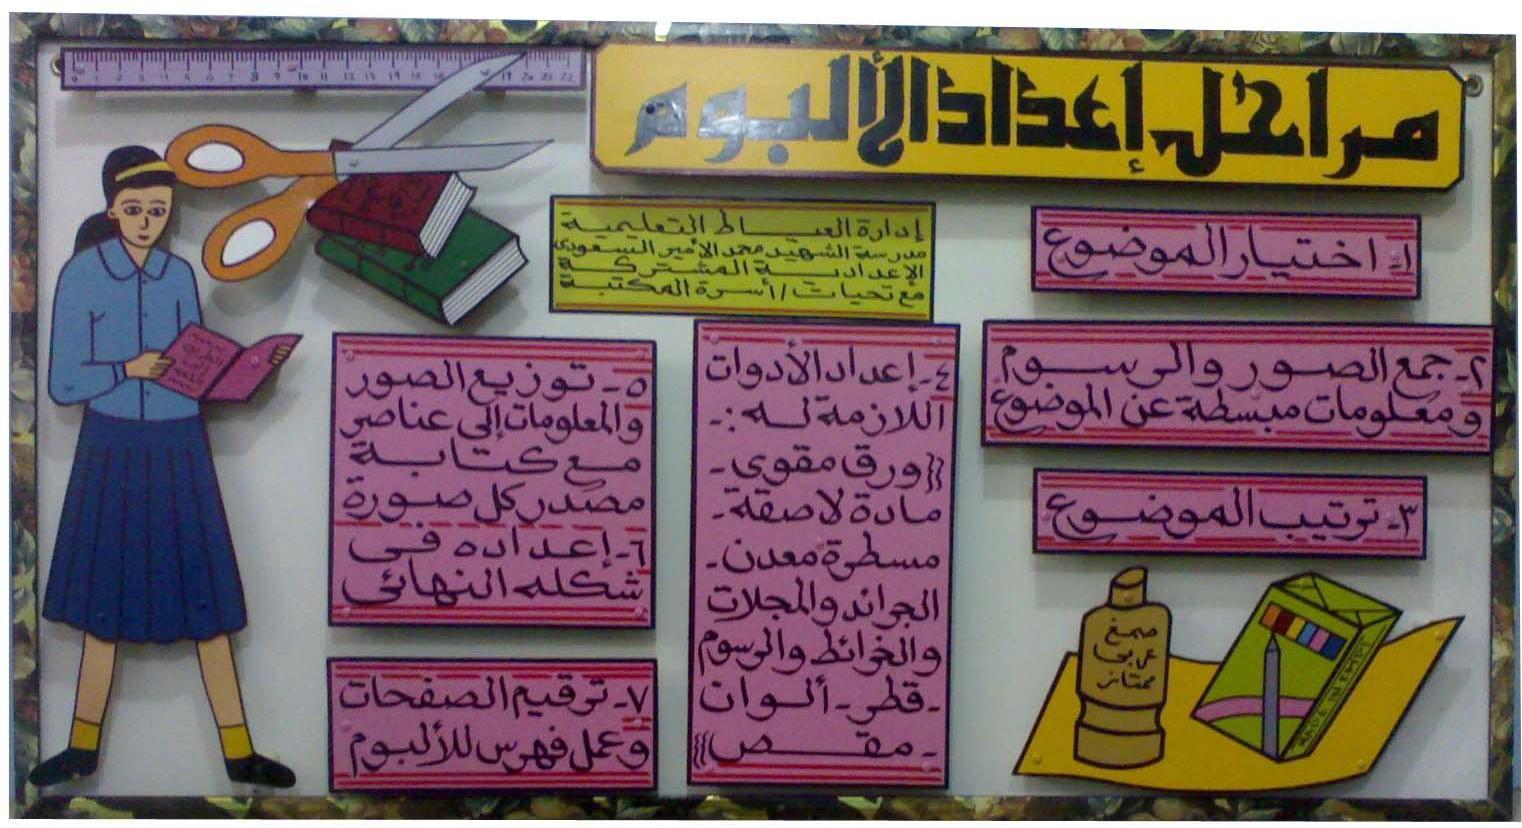 مراحل إعداد الألبوم
إدارة العياط التعليمية
مدرسة الشهيد محمد الأمير السعودى
الإعدادية المشتركة
مع تحيات / أسرة المكتبة
١- اختيار الموضوع
٢- جمع الصور والرسوم
ومعلومات مبسطة عن الموضوع
٣- ترتيب الموضوع
٤- إعداد الأدوات
اللازمة له :-
{{ ورق مقوى -
مادة لاصقة -
مسطرة معدن -
الجرائد والمجلات
والخرائط والرسوم
- قطر - ألوان
- مقص }}
٥- توزيع الصور
والمعلومات إلى عناصر
مع كتابة
مصدر كل صورة
٦- إعداده فى
شكله النهائى
٧- ترقيم الصفحات
وعمل فهرس للألبوم
صمغ
عربى
ممتاز